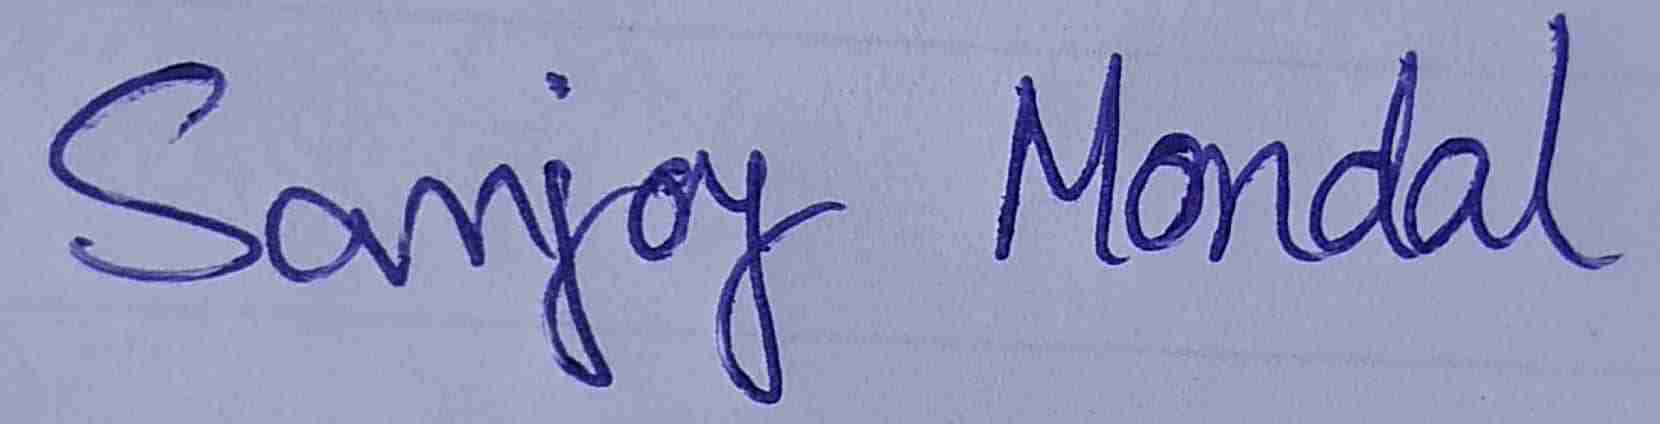 Sanjoy Mondal